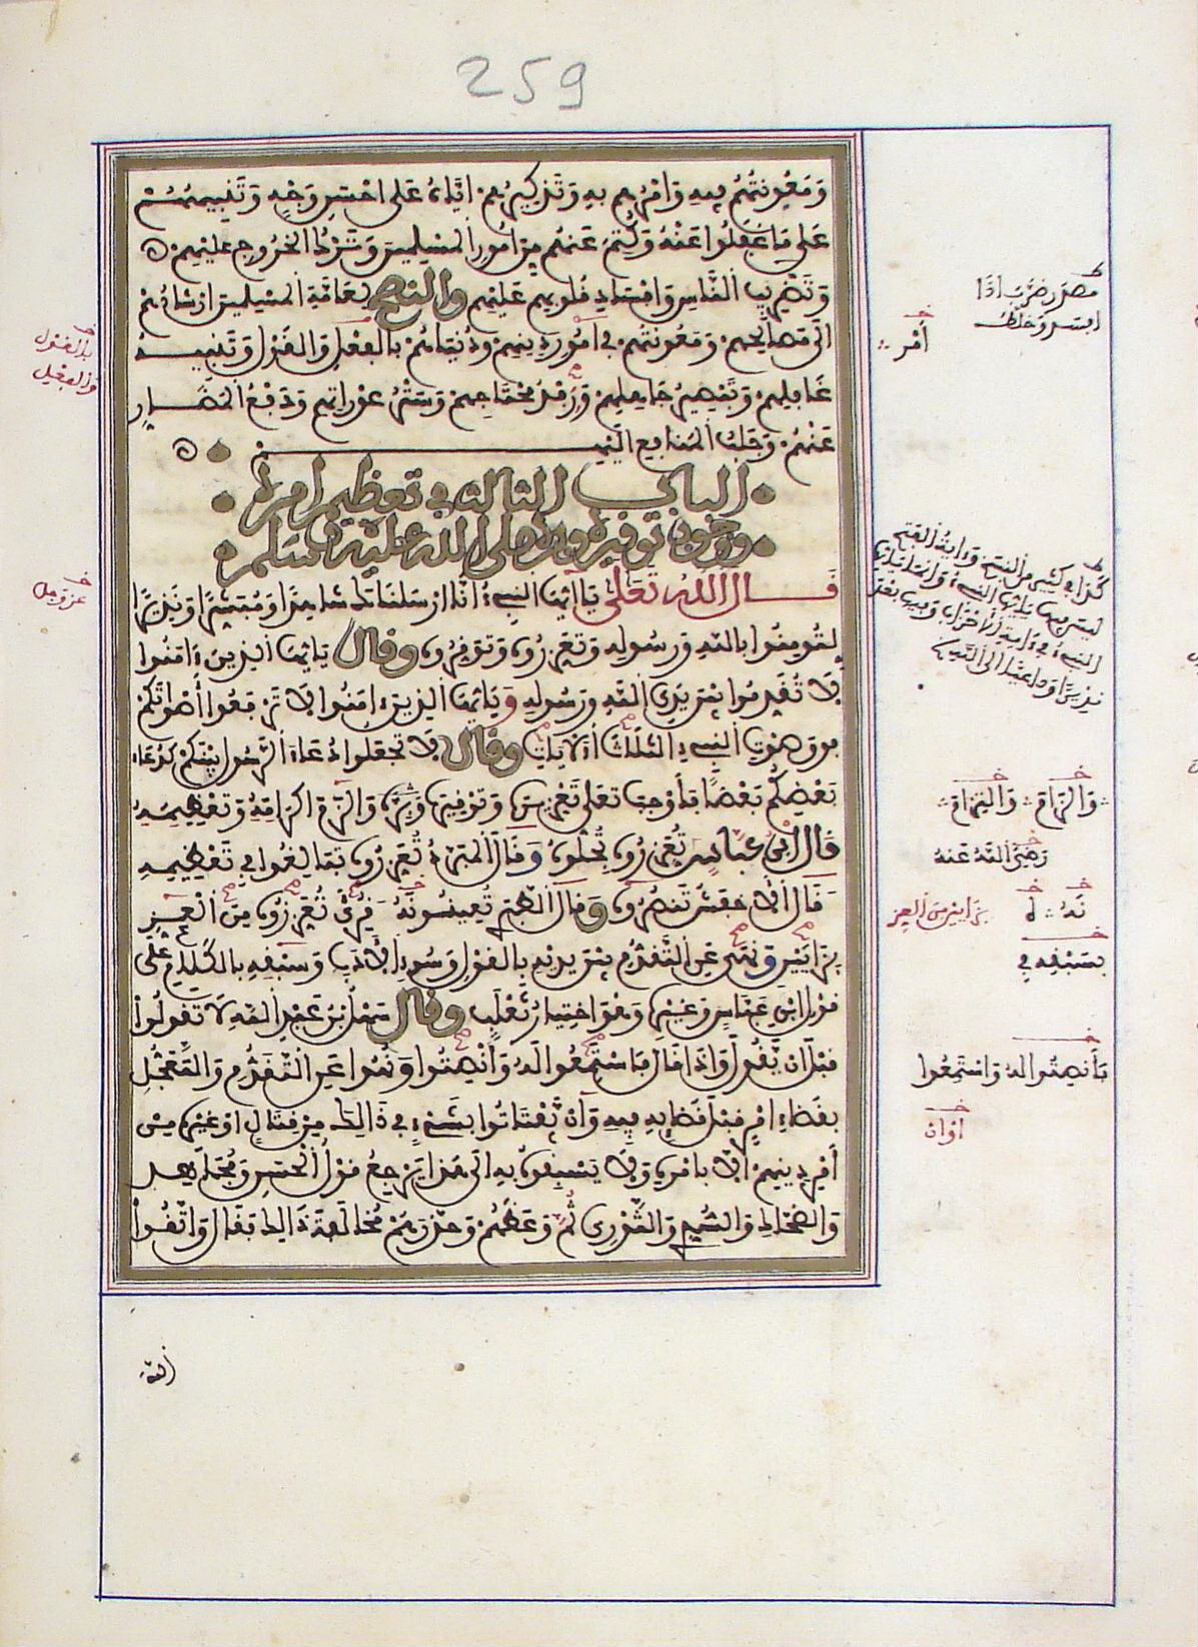 259
وَمَعُونتُهُمْ فِيهِ وَأمْرُهم بهِ وَتَذكِيرُهُمْ إيَّاهُ عَلى احْسَنِ وَجْهٍ وَتَنْبِيهُهُمْ
عَلى مَا غَفَلُوا عَنْهُ وَكُتِمَ عَنهُم مِنْ امُورِ المُسْلِمِينَ وَتَرْكُ الخُرُوجِ عليْهِمْ
وَتَضْرِيبِ النَّاسِ وَافْسَادِ قُلُوبِهِم عَلَيْهِم والنصح لِعَامَّةِ المُسْلِمينَ ارْشَادُهُمْ
الَى مَصَالِحِهِمْ وَمَعُونَتُهُمْ فى امُورِ دِينِهِمْ وَدُنْيَاهُمْ بالفِعْلِ وَالقَوْلِ وَتَنْبِيهُ
غَافِلِهِمْ وَتَبْصِيرُ جَاهِلِهِمْ وَرِفْدُ مُحْتَاجِهِمْ وَسَتْرُ عوْرَاتِهِم وَدَفْعُ المَضَارِ
عَنْهُمْ وَجَلْبُ المَنَافِعِ الَيْهِمْ
الباب الثالث فى تعظيم امره
ووجوب توقيره وبره صلى الله عليه وسلم
قَالَ اللهُ تَعَلَى يَا أيُّهَا النَّبِىءُ انَّا ارْسَلْنَاكَ شَاهِدًا وَمُبَشِّرًا وَنَذِيرًا
لِتُومِنُوا بِاللهِ وَرَسُولِهِ وَتُعَزِّرُوهُ وَتُوَقِّرُوهُ وقال يَأَيُّهَا الذِينَ ءَامَنُوا
لاَ تُقَدِّمُوا بَيْنَ يَدَىِ اللهِ وَرَسُولِهِ وَيَأَيُّهَا الذِينَ ءَامَنُوا لاَ تَرْفَعُوا أَصْوَاتَكُمْ
فَوْقَ صَوْتِ النَّبِىءِ الثَّلاَثَ الآيَاتِ وقال لاَ تَجْعَلُوا دُعَاءَ الرَّسُولِ بَيْنَكُمْ كَدُعَاءِ
بَعْضِكُمْ بَعْضًا فَأَوْجَبَ تَعَلَى تَعْزِيرَهُ وَتَوْقِيرَهُ وَأَلْزَمَ اكْرَامَهُ وَتَعْظِيمَهُ
قَالَ ابْنُ عَبَّاسٍ تُعَزِّرُوهُ تُجِلُّوهُ وَقَالَ المُبَرِّدُ تُعَزِّرُوهُ تُبَالِغُوا فى تَعْظِيمِهِ
قَالَ الأَخْفَشُ تَنْصُرُوهُ وَقَالَ الطَّبَرِى تُعِينُونَهُ وَقُرِئَ تُعَزِّزُوهُ مِنَ الْعِزِّ
وَنَهَى عَنِ التَّقَدُّمِ بَيْنَ يَدَيْهِ بِالقَوْلِ وَسُوءِ الأَدَبِ وَسَبْقِهِ بِالكَلاَمِ عَلَى
قَوْلِ ابْنِ عَبَّاسٍ وَغَيْرِهِ وَهُوَ اخْتِيَارُ ثَعْلَبٍ وقال سَهْلُ بْنُ عَبْدِ اللهِ لاَ تَقُولُوا
قَبْلَ انْ يَّقُولَ وَاذَا قَالَ فَاسْتَمِعُوا لَهُ وَأَنْصِتُوا وَنُهُوا عَنِ التَّقَدُّمِ وَالتَّعَجُّلِ
بِقَضَاءِ امْرٍ قَبْلَ قَضَايِهِ فِيهِ وَأنْ يَّفْتَاتُوا بِشَىْءٍ فى ذَالِكَ مِنْ قِتَالٍ اوْ غَيْرِهِ مِنْ
أمْرِ دِينِهِمْ الاَّ بِأمْرِهِ وَلاَ يَسْبِقُوهُ بِهِ الَى هَذَا يَرْجِعُ قَوْلُ الْحَسَنِ وَمُجَاهِدٍ
وَالضَّحَّاكِ وَالسُّدِّى وَالثَّوْرِى ثُمَّ وَعَظَهُمْ وَحَذَّرَهُمْ مُخَالَفَةَ ذَالِكَ فَقَالَ وَاتَّقُوا
اللهَ
بالقول
والفعل
عز وجل
امر
رَضِىَ اللهُ عَنهُ
بسَبْقِه فى
فَأنصِتُوا لهُ وَاسْتَمِعُوا
اوان